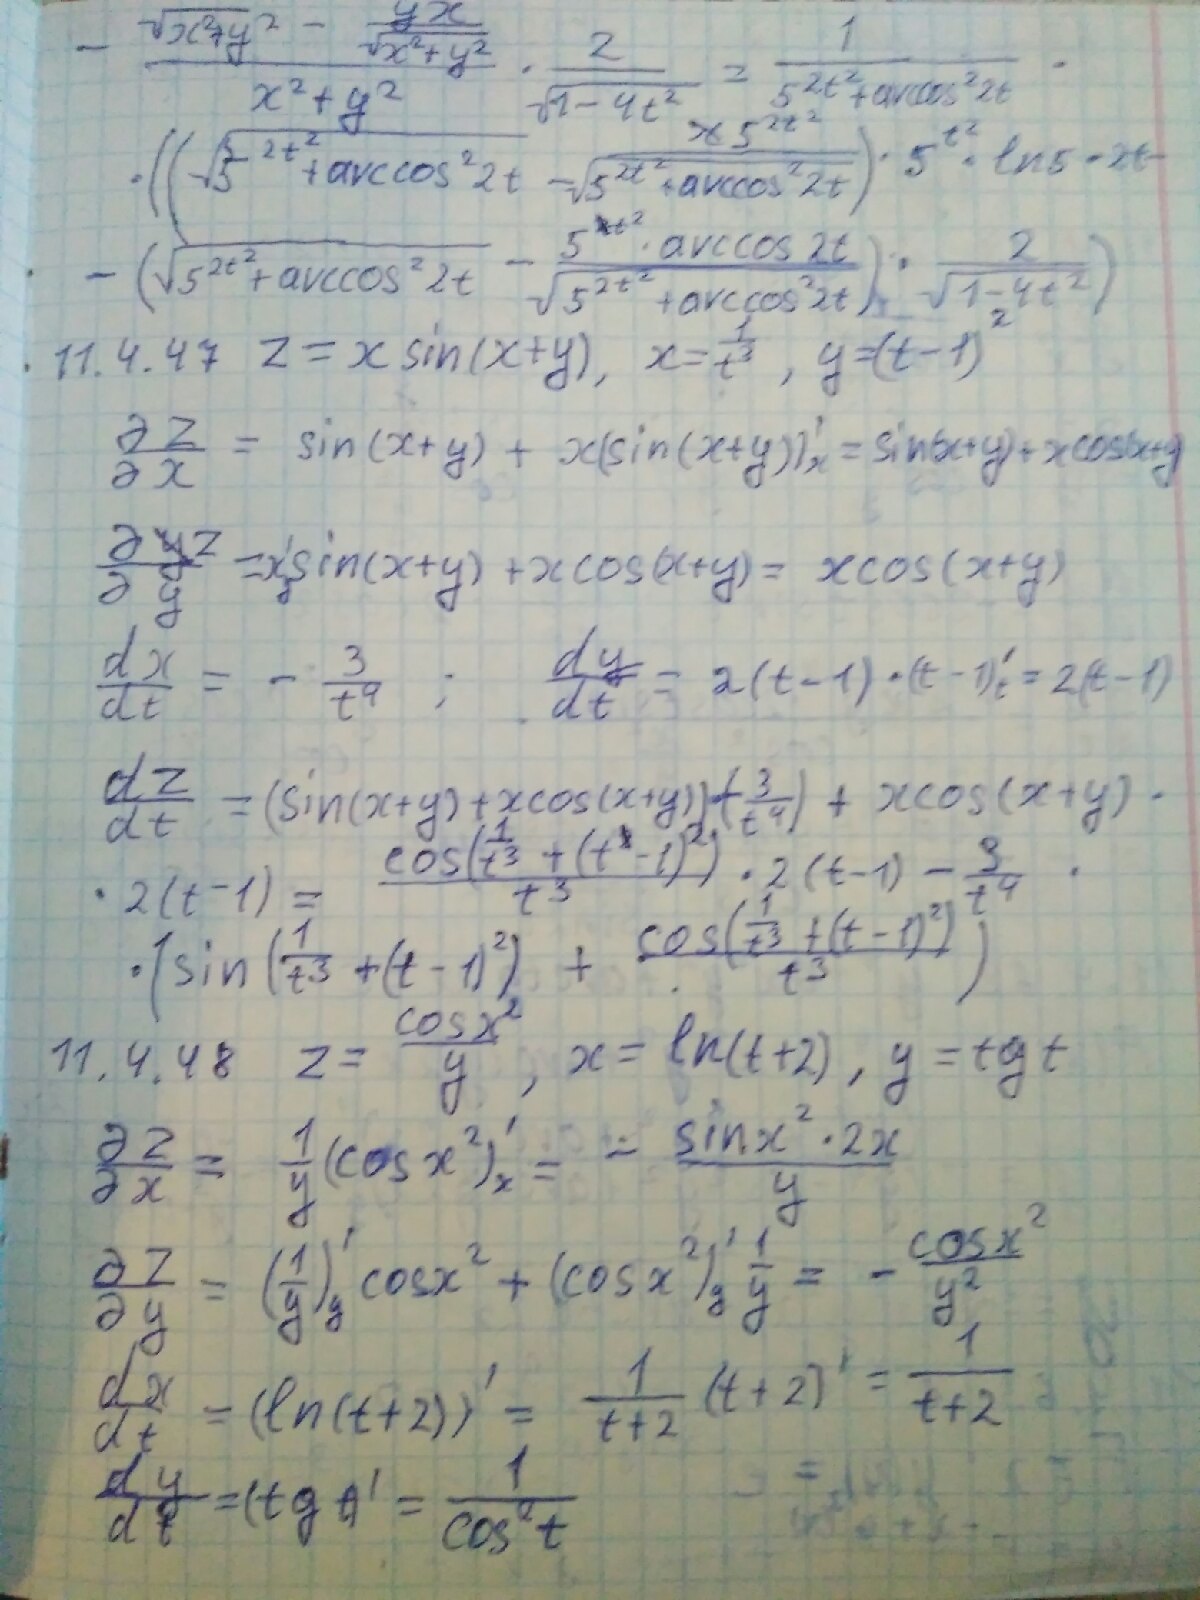 - (√(x²+y²) - yx/√(x²+y²))/(x²+y²) · 2/√(1-4t²) = 1/(5^(2t²)+arccos²2t) ·
·((√(5^(2t²)+arccos²2t) - x5^(2t²)/√(5^(2t²)+arccos²2t))·5^(t²)·ln5·2t-
- (√(5^(2t²)+arccos²2t) - 5^(t²)·arccos2t/√(5^(2t²)+arccos²2t))·2/√(1-4t²))
11.4.47 z=x sin(x+y), x=1/t³, y=(t-1)²
∂z/∂x = sin(x+y) + x(sin(x+y))'ₓ = sin(x+y)+xcos(x+y)
∂z/∂y = x'ᵧsin(x+y)+xcos(x+y) = xcos(x+y)
dx/dt = - 3/t⁴ ; dy/dt = 2(t-1)·(t-1)'ₜ = 2(t-1)
dz/dt = (sin(x+y)+xcos(x+y))·(-3/t⁴) + xcos(x+y)·
·2(t-1) = cos(1/t³+(t-1)²)/t³ · 2(t-1) - 3/t⁴ ·
·(sin(1/t³+(t-1)²) + cos(1/t³+(t-1)²)/t³)
11.4.48 z= cosx²/y, x=ln(t+2), y=tgt
∂z/∂x = 1/y(cosx²)'ₓ = - sinx²·2x/y
∂z/∂y = (1/y)'ᵧcosx²+(cosx²)'ᵧ1/y = - cosx²/y²
dx/dt = (ln(t+2))' = 1/(t+2) (t+2)' = 1/(t+2)
dy/dt = (tgt)' = 1/cos²t